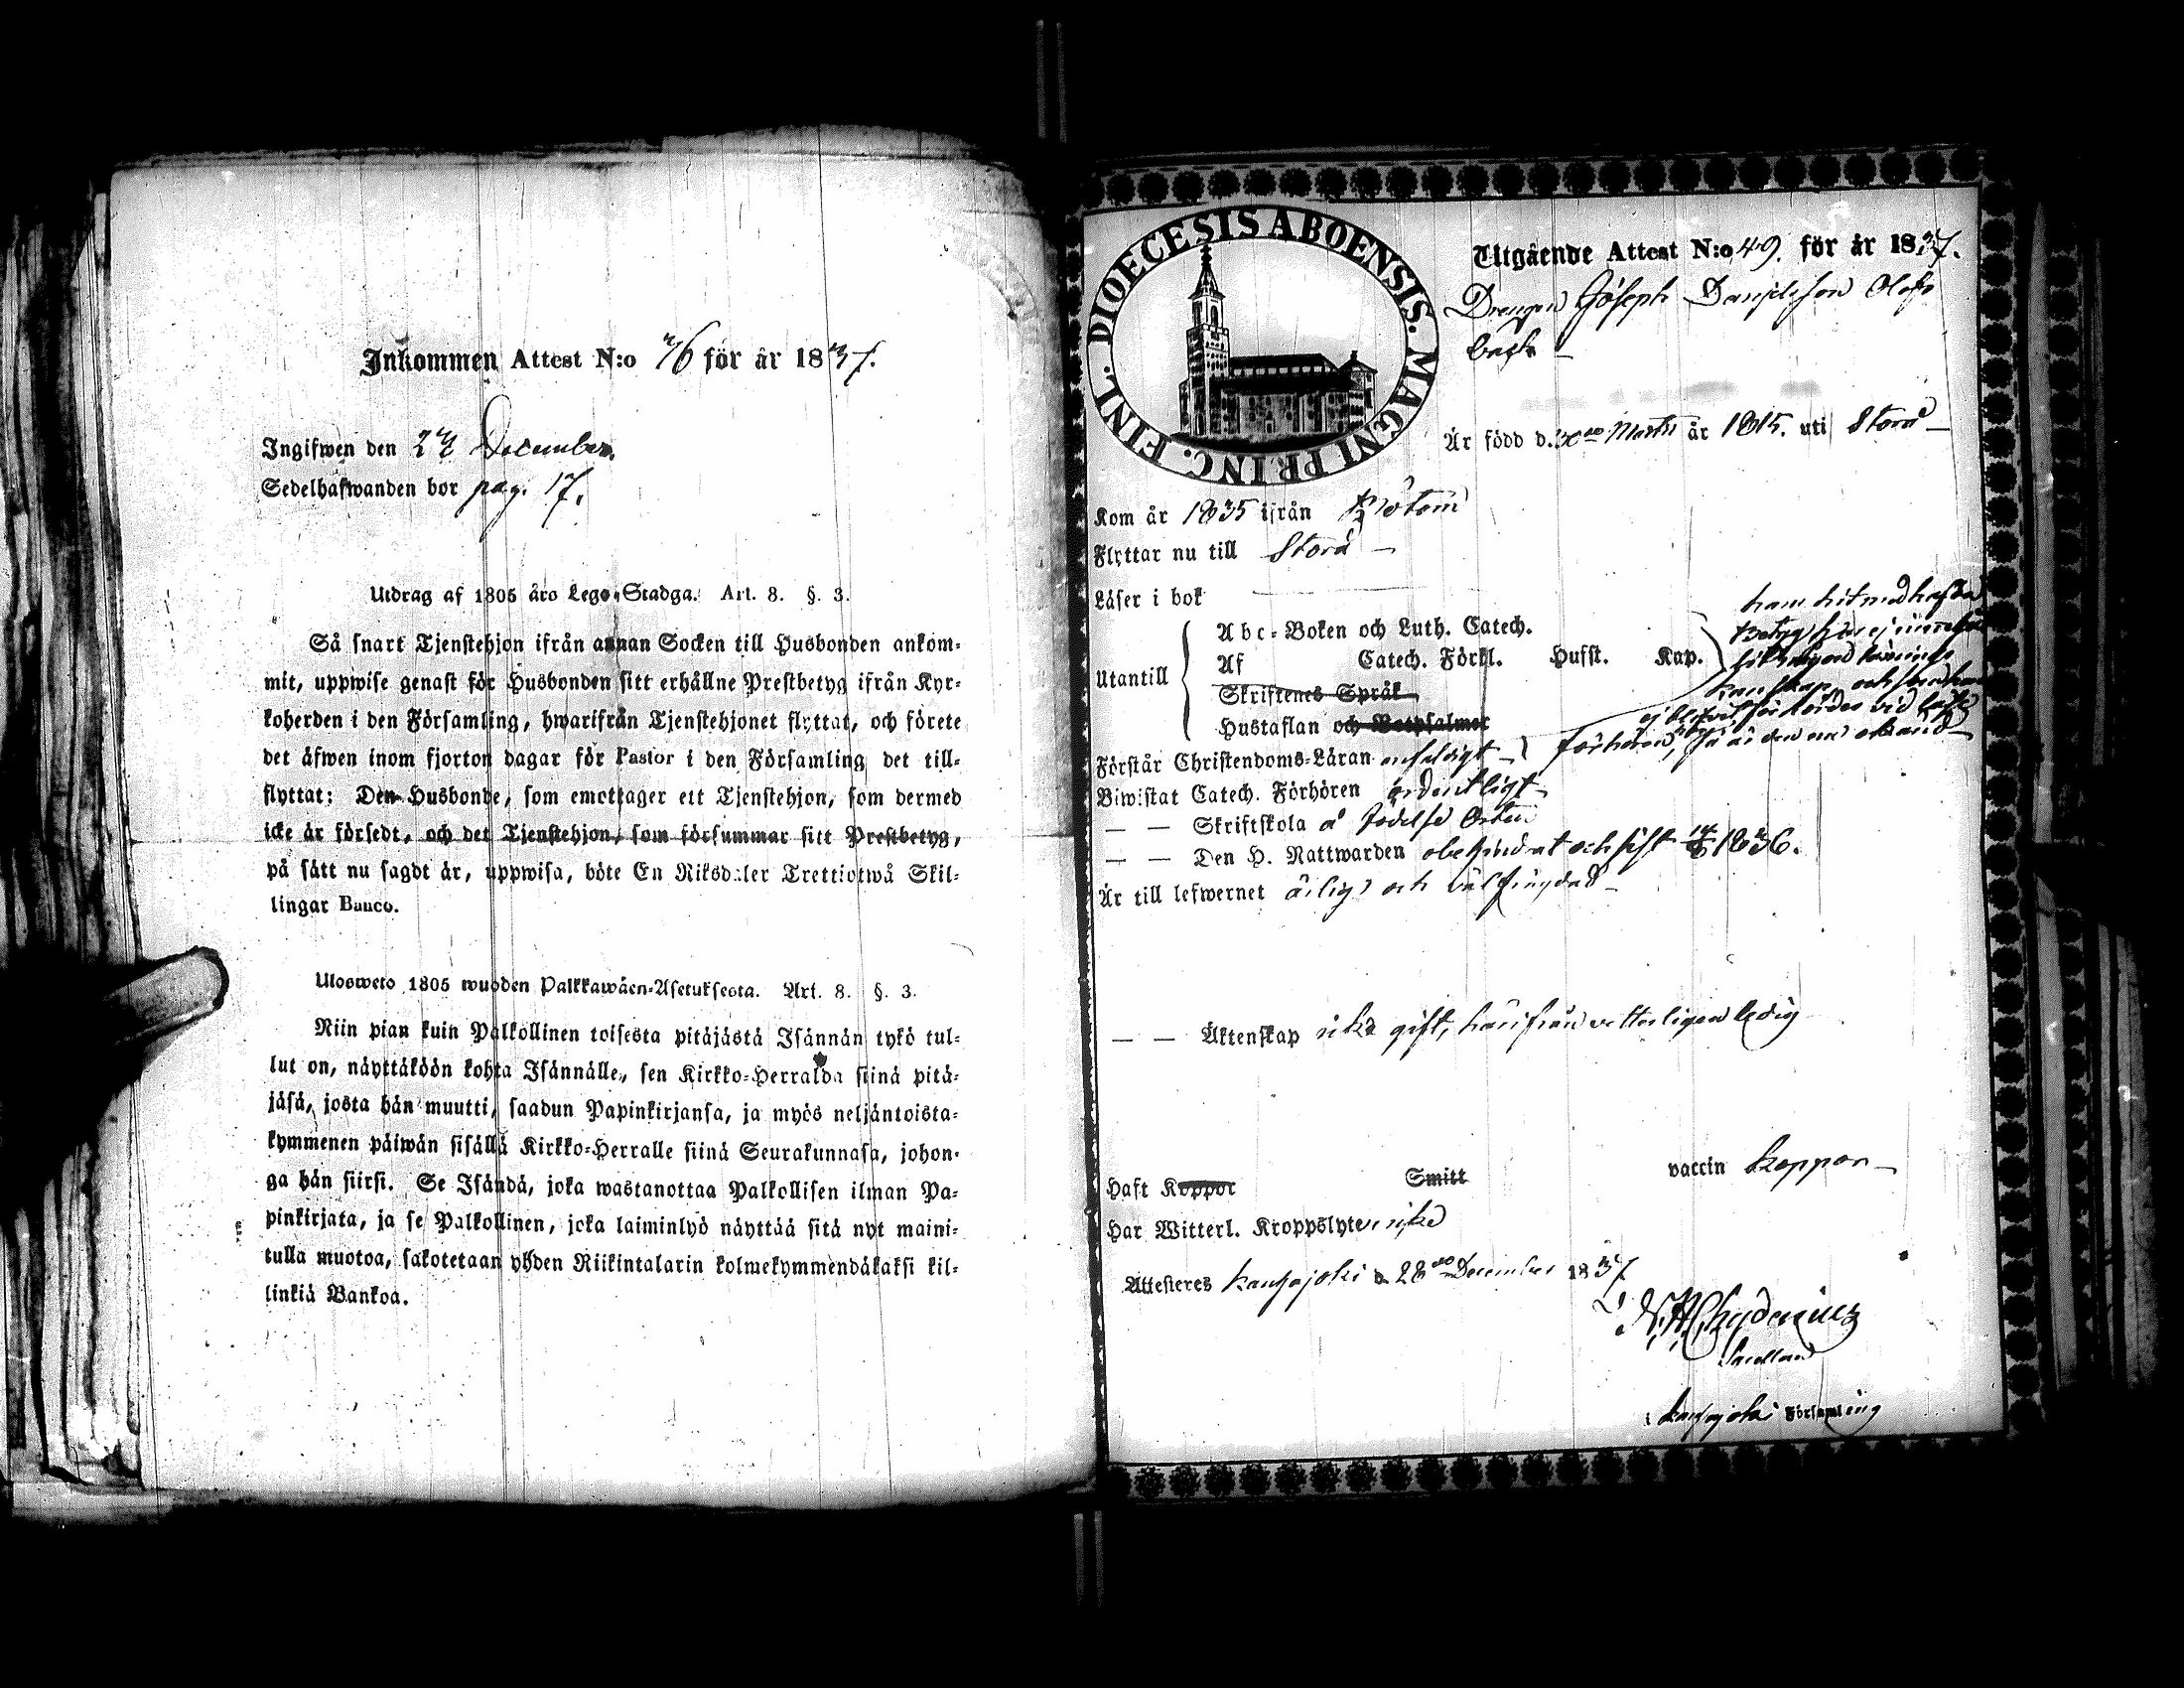 Inkommen Attest N:o 76 för år 1837.
Ingifwen den December.
Sedelhafwanden bor pag. 17.
Utdrag af 1805 års Lego-Stadga. Art. 8. §. 3.
Så snart Tjenstehjon ifrån annan Socken till Husbonden ankom-
mit, uppwise genast för Husbonden sitt erhållne Prestbetyg ifrån Kyr-
koherden i den Församling, hwarifrån Tjenstehjonet flyttat, och förete
det äfwen inom fjorton dagar för Pastor i den Församling det till-
flyttat: Den Husbonde, som emottager ett Tjenstehjon, som dermed
icke är försedt, och det Tjenstehjon, som försummar sitt Prestbetyg,
på sätt nu sagdt är, uppwisa, böte En Riksdaler Trettiotwå Skil-
lingar Banco.
Ulosweto 1805 wuoden Palkkawäen-Asetuksesta. Art. 8. §. 3.
Niin pian kuin Palkollinen toisesta pitäjästä Isännän tykö tul-
lut on, näyttäköön kohta Isännälle, sen Kirkko-Herralda siinä pitä-
jäsä, josta hän muutti, saadun Papinkirjansa, ja myös neljäntoista-
kymmenen päiwän sisällä Kirkko-Herralle siinä Seurakunnasa, johon-
ga hän siirsi. Se Isändä, joka wastanottaa Palkollisen ilman Pa-
pinkirjata, ja se Palkollinen, joka laiminlyö näyttää sitä nyt maini-
tulla muotoa, sakotetaan yhden Riikintalarin kolmekymmendäkaksi kil-
linkiä Bankoa.
DIOECESIS ABOENSIS. MAGNI PRINC. FINL.
Utgående Attest N:o 49. för år 1837.
Drengen Joseph Danielsson Olofs
Är född d. 30 Martii år 1815. uti Storå
Kom år 1835 ifrån Bötom
Flyttar nu till Storå
Läser i bok
Utantill
Abc-Boken och Luth. Catech.
Af Catech. Förkl. Hufst. Kap.
Skriftenes Språk
Hustaflan och Botpsalmer
ham hitmedhafda
Förstår Christendoms-Läran
Biwistat Catech. Förhören ordentligt
— — Skriftskola å födelse Orten
— — Den H. Nattwarden obehindrat och sist 1836.
Är till lefwernet ärlig och välfrägdad
— — Äktenskap icke gift, härifrån vetterligen ledig
Haft Koppor Smitt vaccin koppor
Har Witterl. Kroppslyte icke
Attesteres Kauhajoki d. 28 December 1837
Chydenius
Sacellan
i Kauhajoki Församling